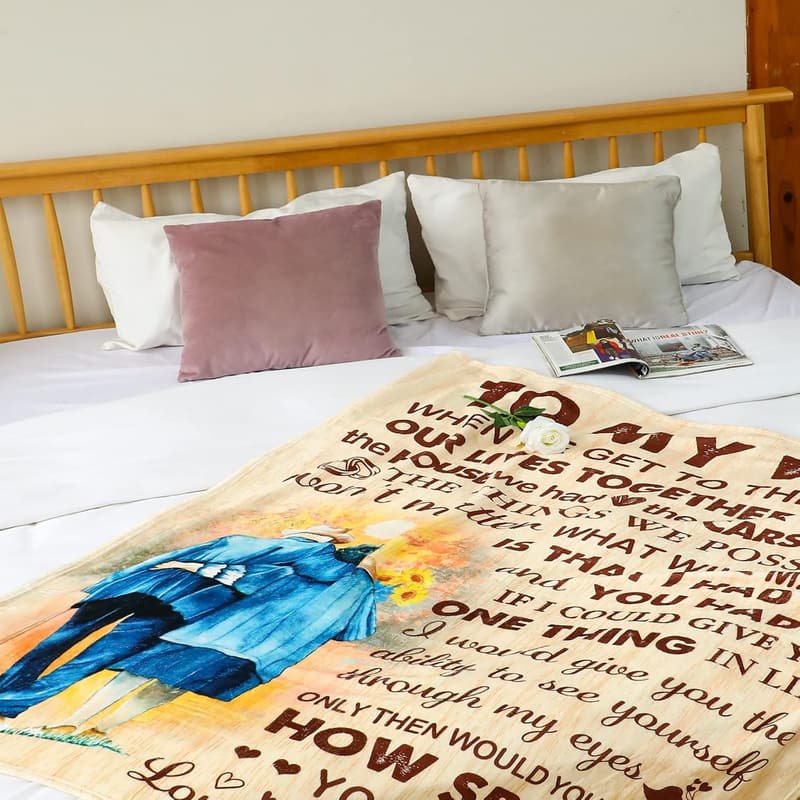 TO MY W
WHEN GET TO TH
OUR LIVES TOGETHER
the HOUSE we had the CARS
THE THINGS WE POSS
won't matter WHAT WILL M
IS THAT I HAD
and YOU HAD
IF I COULD GIVE Y
ONE THING IN LI
I would give you the
ability to see yourself
through my eyes
ONLY THEN WOULD YOU
HOW SP
YO
Lo
WHAT IS REAL STIHL?